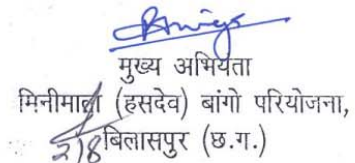 मुख्य अभियंता
मिनीमाता (हसदेव) बांगो परियोजना,
बिलासपुर (छ.ग.)